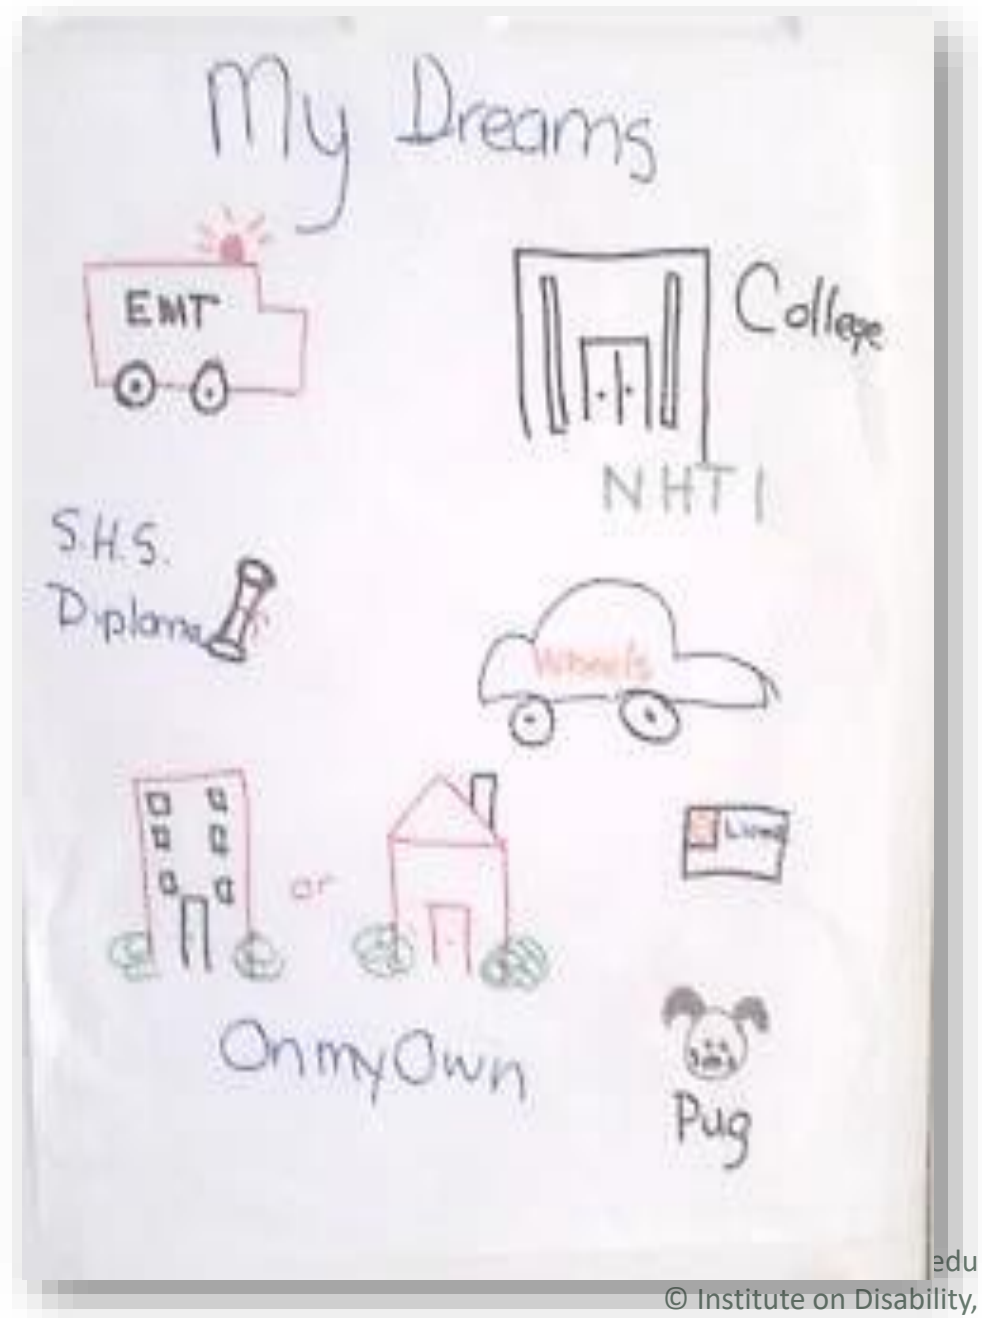 My Dreams
EMT
College
NHTI
S.H.S.
Diploma
Wheels
or
On my Own
Pug
edu
© Institute on Disability,